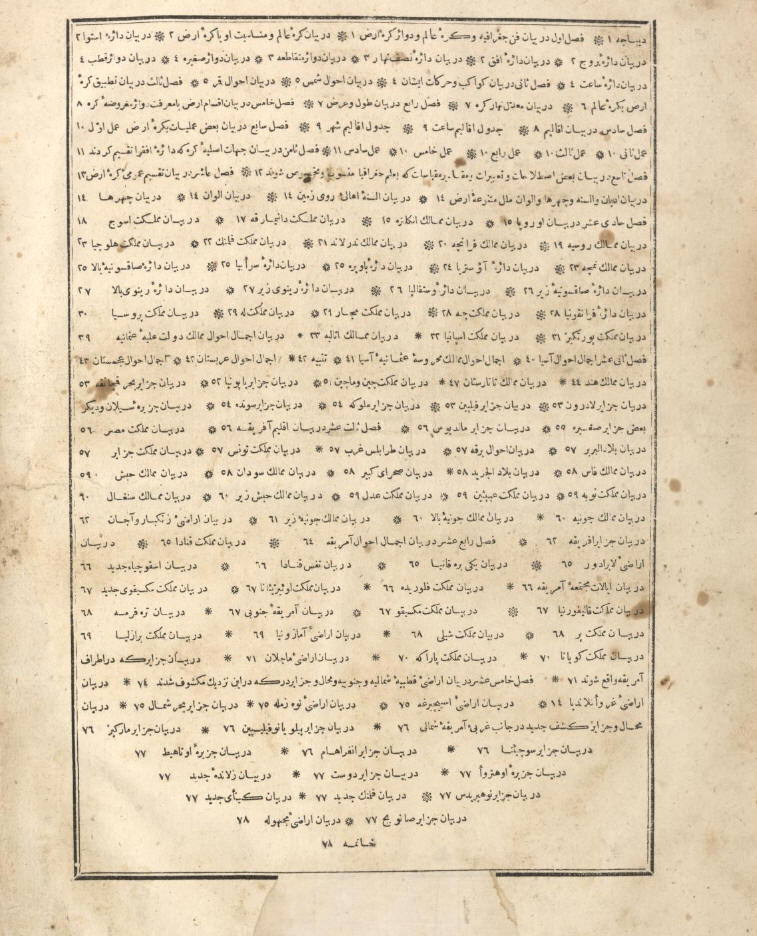 دیباجه ١ ❊ فصل اول در بیان فن جغرافیه وکرهٔ عالم ودوائر کرهٔ ارض ١ ❊ در بیان کرهٔ عالم ومناسبت او باکرهٔ ارض ٢ ❊ در بیان دائرهٔ استوا ٢
در بیان دائرهٔ بروج ٢ ❊ در بیان دائرهٔ افق ٢ ❊ در بیان دائرهٔ نصف نهار ٣ ❊ در بیان دوائر متقاطعه ٣ ❊ در بیان دوائر صغیره ٤ ❊ در بیان دوائر قطب ٤
در بیان دائرهٔ ساعت ٤ ❊ فصل ثانی در بیان کواکب وحرکات ایشان ٤ ❊ در بیان احوال شمس ٥ ❊ در بیان احوال قمر ٥ ❊ فصل ثالث در بیان تطبیق کرهٔ
ارض بکرهٔ عالم ٦ ❊ در بیان معدل نهار کره ٧ ❊ فصل رابع در بیان طول وعرض ٧ ❊ فصل خامس در بیان اقسام ارض بامعرفت دوائر مفروضهٔ کره ٨
فصل سادس در بیان اقالیم ٨ ❊ جدول اقالیم ساعت ٩ ❊ جدول اقالیم شهر ٩ ❊ فصل سابع در بیان بعض عملیات بکرهٔ ارض عمل اول ١٠
عمل ثانی ١٠ ❊ عمل ثالث ١٠ ❊ عمل رابع ١٠ ❊ عمل خامس ١٠ ❊ عمل سادس ١١ ❊ فصل ثامن در بیان جهات اصلیه که دائرهٔ افقرا تقسیم کردند ١١
فصل تاسع در بیان بعض اصطلاحات وتعبیرات ومقادیر مقیاسات که بعلم جغرافیا منسوب ومخصوص شوند ١٢ ❊ فصل عاشر در بیان تقسیم عمومیٔ کرهٔ ارض ١٣
در بیان ادیان والسنه وچهرها والوان ملل متنوعهٔ ارض ١٤ ❊ در بیان السنهٔ اهالیٔ روی زمین ١٤ ❊ در بیان الوان ١٤ ❊ در بیان چهرها ١٤
فصل حادی عشر در بیان اوروپا ١٥ ❊ در بیان ممالک انکلتره ١٥ ❊ در بیان مملکت دانیمارقه ١٧ ❊ در بیان مملکت اسوج ١٨
در بیان ممالک روسیه ١٩ ❊ در بیان ممالک فرانچه ٢٠ ❊ در بیان ممالک ندرلاند ٢١ ❊ در بیان مملکت فلمنک ٢٢ ❊ در بیان مملکت هلوچیا ٢٣
در بیان ممالک نمچه ٢٣ ❊ در بیان دائرهٔ آوستریا ٢٤ ❊ در بیان دائرهٔ باویره ٢٥ ❊ در بیان دائرهٔ سوابیا ٢٥ ❊ در بیان دائرهٔ صاقسونیهٔ بالا ٢٥
در بیان دائرهٔ صاقسونیهٔ زیر ٢٦ ❊ در بیان دائرهٔ وستفالیا ٢٦ ❊ در بیان دائرهٔ رینویٔ زیر ٢٧ ❊ در بیان دائرهٔ رینویٔ بالا ٢٧
در بیان دائرهٔ فرانقونیا ٢٨ ❊ در بیان مملکت چه ٢٨ ❊ در بیان مملکت مجار ٢٩ ❊ در بیان مملکت له ٢٩ ❊ در بیان مملکت پروسیا ٣٠
در بیان مملکت پورتکیز ٣١ ❊ در بیان مملکت اسپانیا ٣٢ ❊ در بیان ممالک ایتالیه ٣٣ ❊ در بیان اجمال احوال ممالک دولت علیهٔ عثمانیه ٣٩
فصل ثانی عشر اجمال احوال آسیا ٤٠ ❊ اجمال احوال ممالک محروسهٔ عثمانیهٔ آسیا ٤١ ❊ تنبیه ٤٢ ❊ اجمال احوال عربستان ٤٢ ❊ اجمال احوال عجمستان ٤٣
در بیان ممالک هند ٤٤ ❊ در بیان ممالک تاتارستان ٤٧ ❊ در بیان مملکت چین وماچین ٥١ ❊ در بیان جزایر یاپونیا ٥٢ ❊ در بیان جزایر بحر ٥٣
در بیان جزایر لادرون ٥٣ ❊ در بیان جزایر فیلپین ٥٣ ❊ در بیان جزایر ملوکه ٥٤ ❊ در بیان جزایر سونده ٥٤ ❊ در بیان جزیرهٔ سیلان ودیکر
بعض جزایر صغیره ٥٥ ❊ در بیان جزایر مالدیوس ٥٦ ❊ فصل ثالث عشر در بیان اقلیم آفریقه ٥٦ ❊ در بیان مملکت مصر ٥٦
در بیان بلاد البربر ٥٧ ❊ در بیان احوال برقه ٥٧ ❊ در بیان طرابلس غرب ٥٧ ❊ در بیان مملکت تونس ٥٧ ❊ در بیان مملکت جزایر ٥٧
در بیان ممالک فاس ٥٨ ❊ در بیان بلاد الجرید ٥٨ ❊ در بیان صحرای کبیر ٥٨ ❊ در بیان ممالک سودان ٥٨ ❊ در بیان ممالک حبش ٥٩
در بیان مملکت نوبه ٥٩ ❊ در بیان مملکت ٥٩ ❊ در بیان مملکت عدل ٥٩ ❊ در بیان ممالک حبش زیر ٦٠ ❊ در بیان ممالک سنغال ٦٠
در بیان ممالک جونیه ٦٠ ❊ در بیان ممالک جونیهٔ بالا ٦٠ ❊ در بیان ممالک جونیهٔ زیر ٦١ ❊ در بیان اراضیٔ زنکبار وآجان ٦٢
در بیان جزایر افریقه ٦٢ ❊ فصل رابع عشر در بیان اجمال احوال آمریقه ٦٤ ❊ در بیان مملکت قنادا ٦٥ ❊ در بیان
اراضیٔ لابرادور ٦٥ ❊ در بیان یکی بره تانیا ٦٥ ❊ در بیان نفس قنادا ٦٦ ❊ در بیان اسقوچیاه جدید ٦٦
در بیان ایالات مجتمعهٔ آمریقه ٦٦ ❊ در بیان مملکت فلوریده ٦٦ ❊ در بیان مملکت لوئیزیانا ٦٧ ❊ در بیان مملکت مکسیقوی جدید ٦٧
در بیان مملکت قالیفورنیا ٦٧ ❊ در بیان مملکت مکسیقو ٦٧ ❊ در بیان آمریقهٔ جنوبی ٦٧ ❊ در بیان تره فرمه ٦٨
در بیان مملکت پرو ٦٨ ❊ در بیان مملکت شیلی ٦٨ ❊ در بیان اراضیٔ آمازونیا ٦٩ ❊ در بیان مملکت برازلیا ٦٩
در بیان مملکت کویانا ٧٠ ❊ در بیان مملکت پاراکه ٧٠ ❊ در بیان اراضیٔ ماجلان ٧١ ❊ در بیان جزایر که در اطراف
آمریقه واقع شوند ٧١ ❊ فصل خامس عشر در بیان اراضیٔ قطبیهٔ شمالیه وجنوبیه ومحال وجزایر دیکر که در این نزدیک مکشوف شدند ٧٤ ❊ در بیان
اراضیٔ غروأنلاندیا ٧٤ ❊ در بیان اراضیٔ اسپیچبرغه ٧٥ ❊ در بیان اراضیٔ نوه زمله ٧٥ ❊ در بیان جزایر بحر شمال ٧٥ ❊ در بیان
محال وجزایر کشف جدید در جانب غربیٔ آمریقهٔ شمالی ٧٦ ❊ در بیان جزایر پیلویا نو فیلیپین ٧٦ ❊ در بیان جزایر مارکیز ٧٦
در بیان جزایر سوچیتا ٧٦ ❊ در بیان جزایر انفراهام ٧٦ ❊ در بیان جزیرهٔ اوتاهیط ٧٧
در بیان جزیرهٔ اوهتروأ ٧٧ ❊ در بیان جزایر دوست ٧٧ ❊ در بیان زلاندهٔ جدید ٧٧
در بیان جزایر نوهبریدس ٧٧ ❊ در بیان فلمنک جدید ٧٧ ❊ در بیان کینأی جدید ٧٧
در بیان جزایر صاندویج ٧٧ ❊ در بیان اراضیٔ مجهوله ٧٨
خاتمه ٧٨